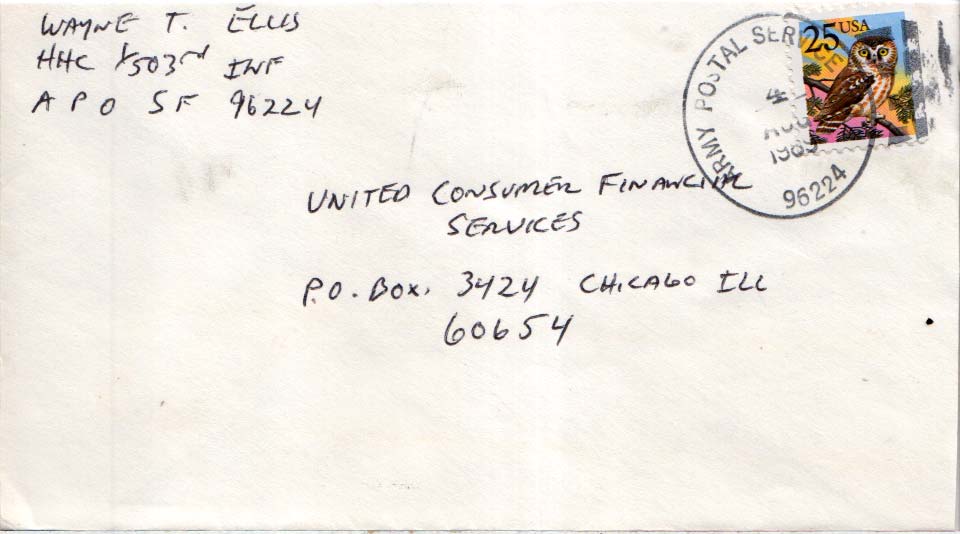 WAYNE T. ELLIS
HHC 1/503rd INF
APO SF 96224
25 USA
ARMY POSTAL SERVICE
4
AUG
1989
96224
UNITED CONSUMER FINANCIAL
SERVICES
P.O. BOX. 3424 CHICAGO ILL
60654